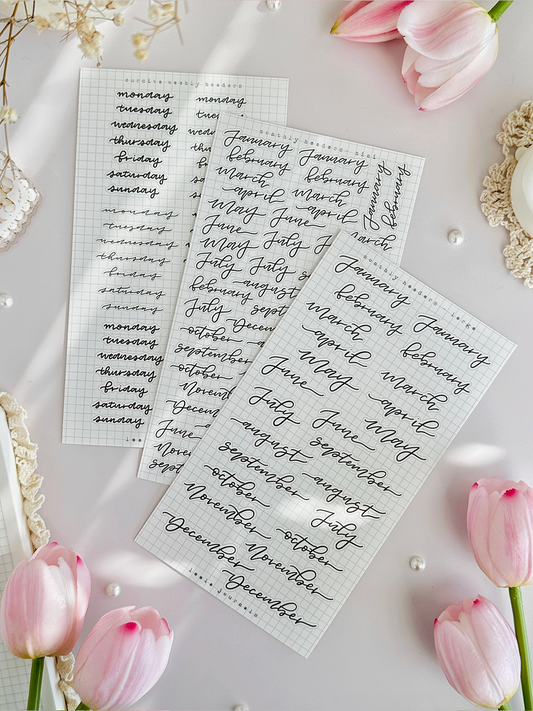 weekly headers
monday
tuesday
wednesday
thursday
friday
saturday
sunday
monday
tuesday
wednesday
thursday
friday
saturday
sunday
monday
tuesday
wednesday
thursday
friday
saturday
sunday
monday
monthly headers
January January
february february
March March
april april
May June
June July
May July
July July
august
february
July
December
october
september
october
December
June
January
february
March
monthly headers - large
January January
february february
March March
april april
May May
June June
July
august september
september august
october July
November october
December November
December